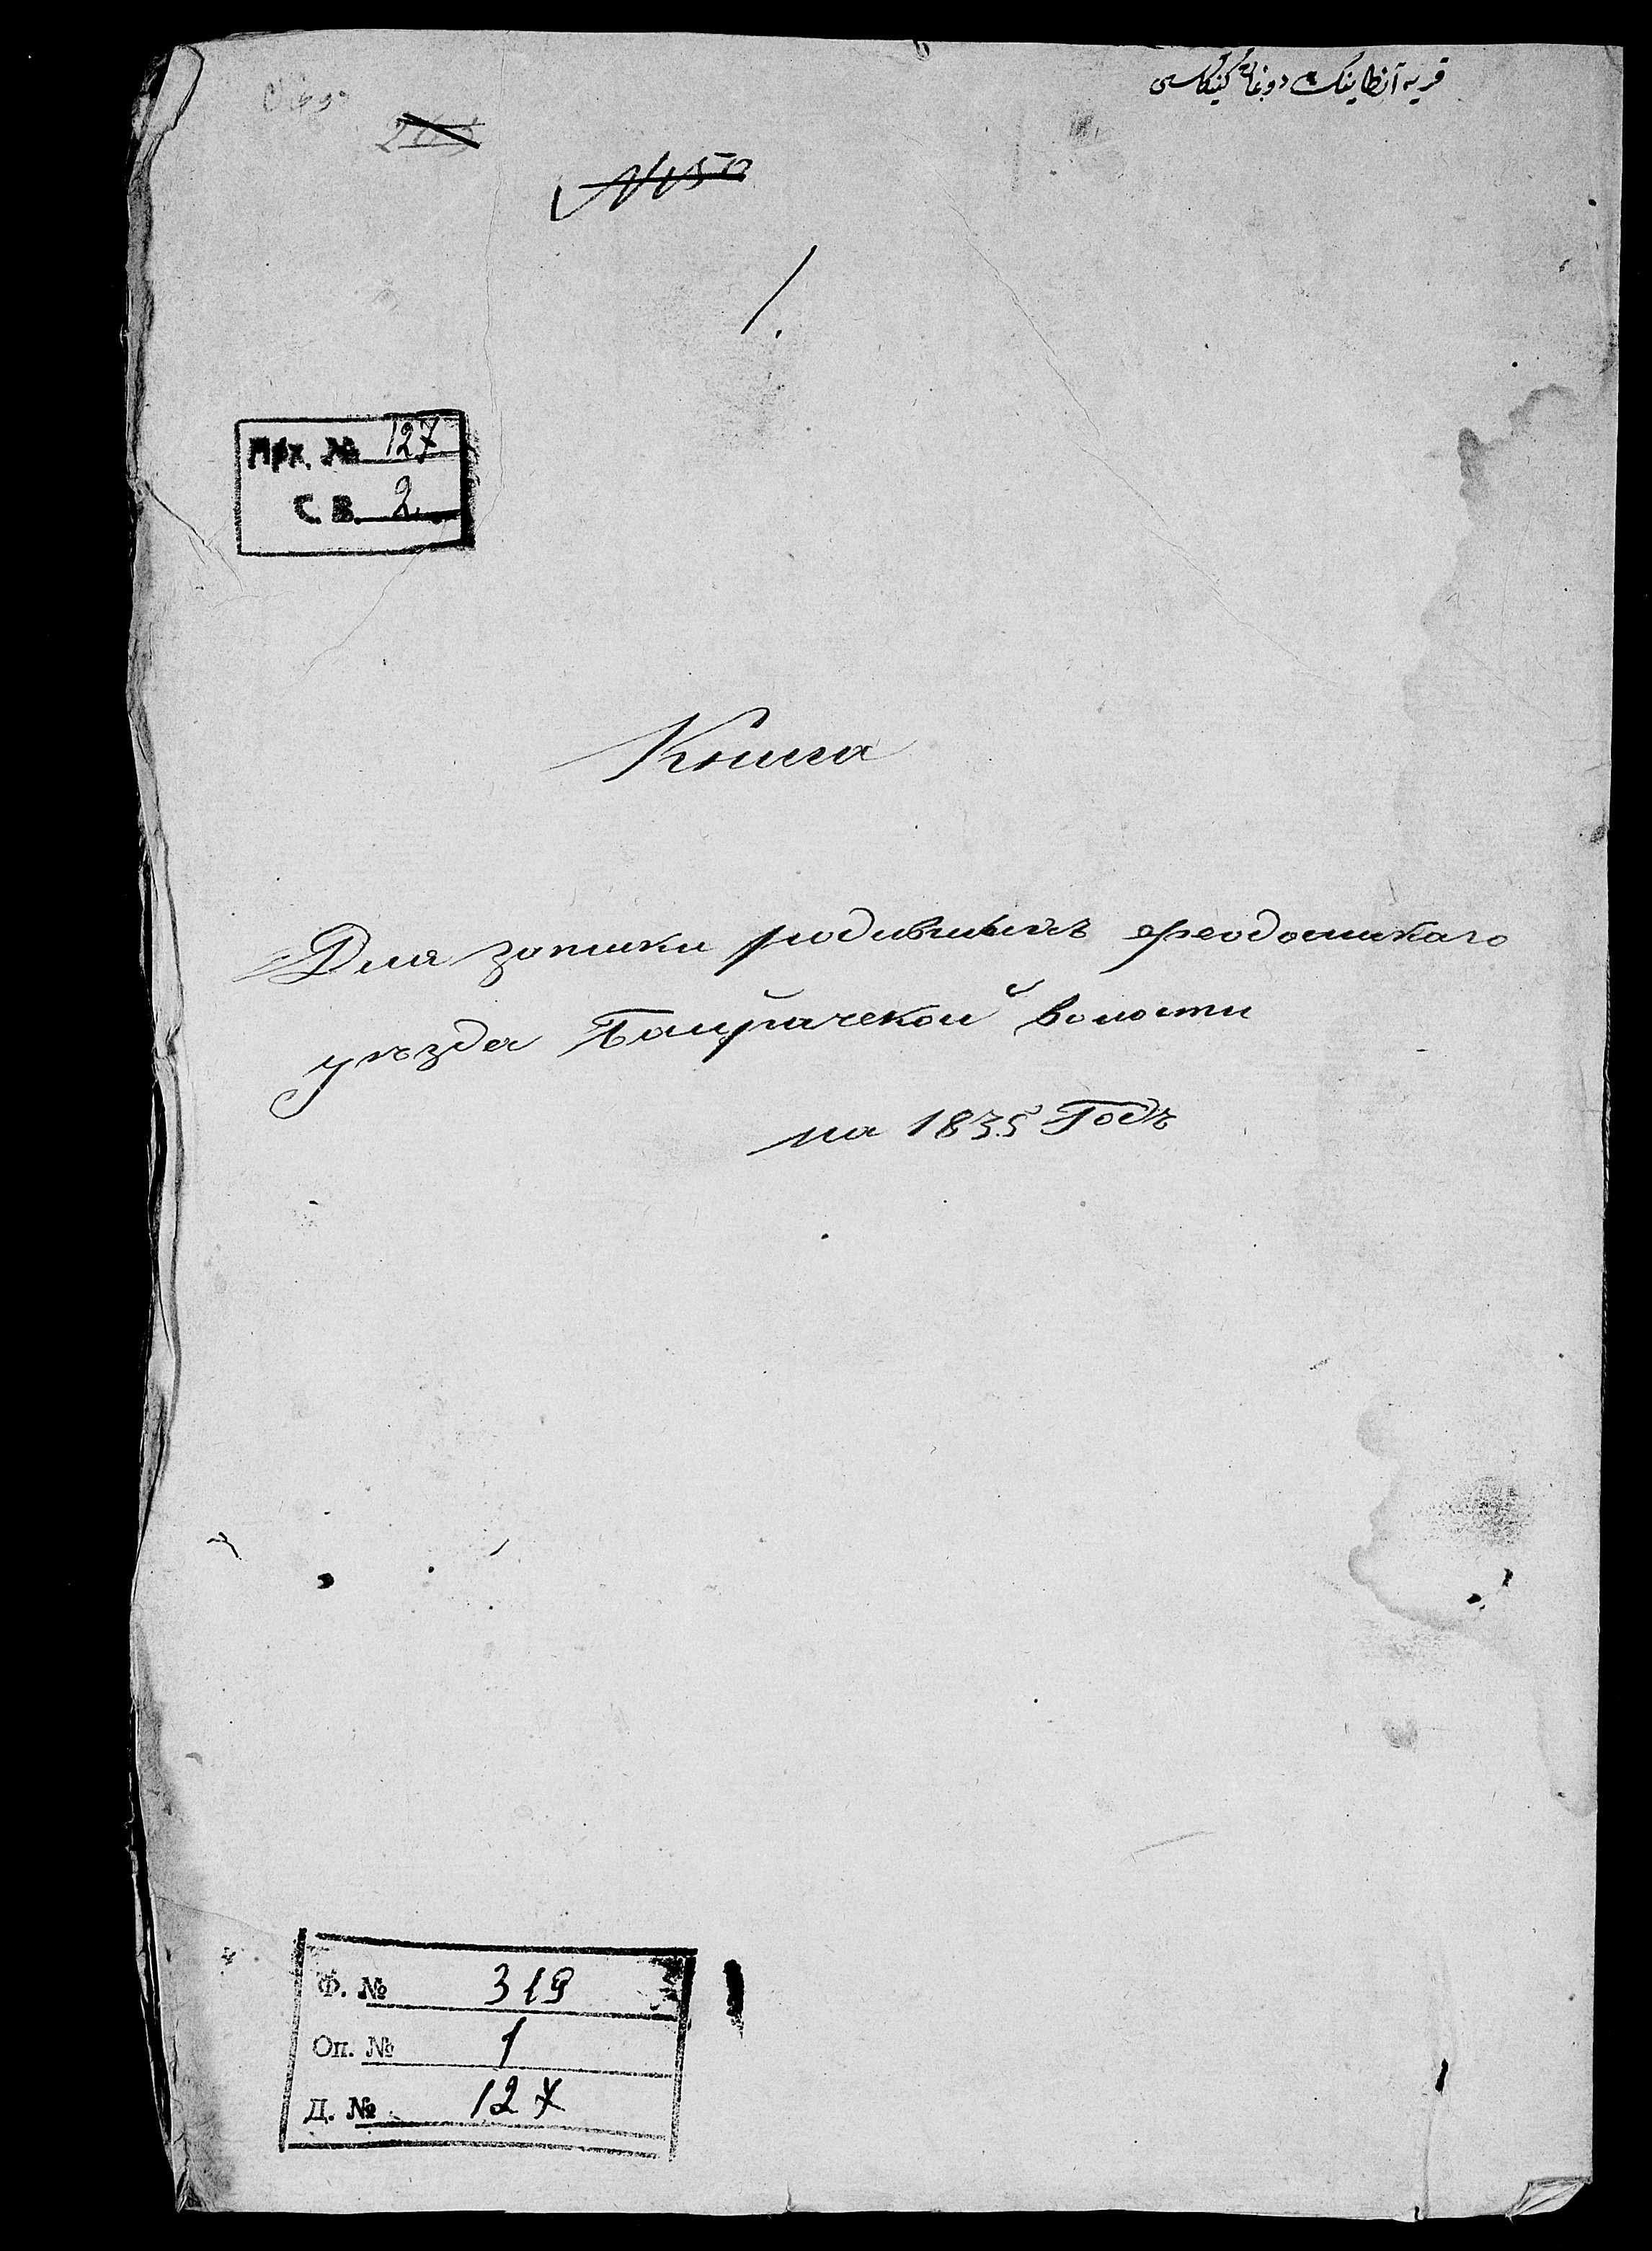 قریه آنطاینك
№ 150
1.
Арх. № 127
С. В. 2
Книга
Для записки родившихъ Феодосийскаго
уѣзда Байрачской волости
на 1835 Годъ
Ф. № 319
Оп. № 1
Д. № 127